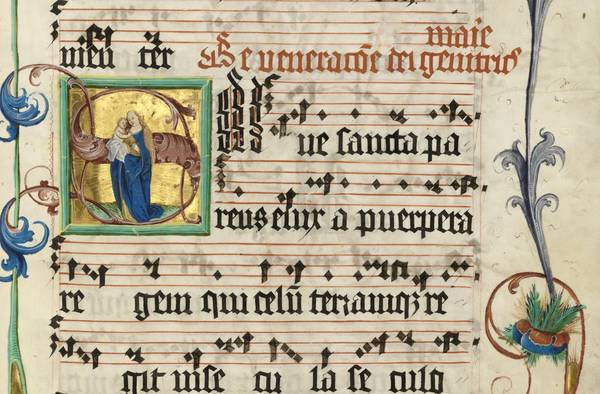 marie
meū ter De veneracōe dei genitricꝭ
Sal ue sancta pa
rens enix a puerpera
re gem qui celū terramqꝫ re
git in se cu la se culo